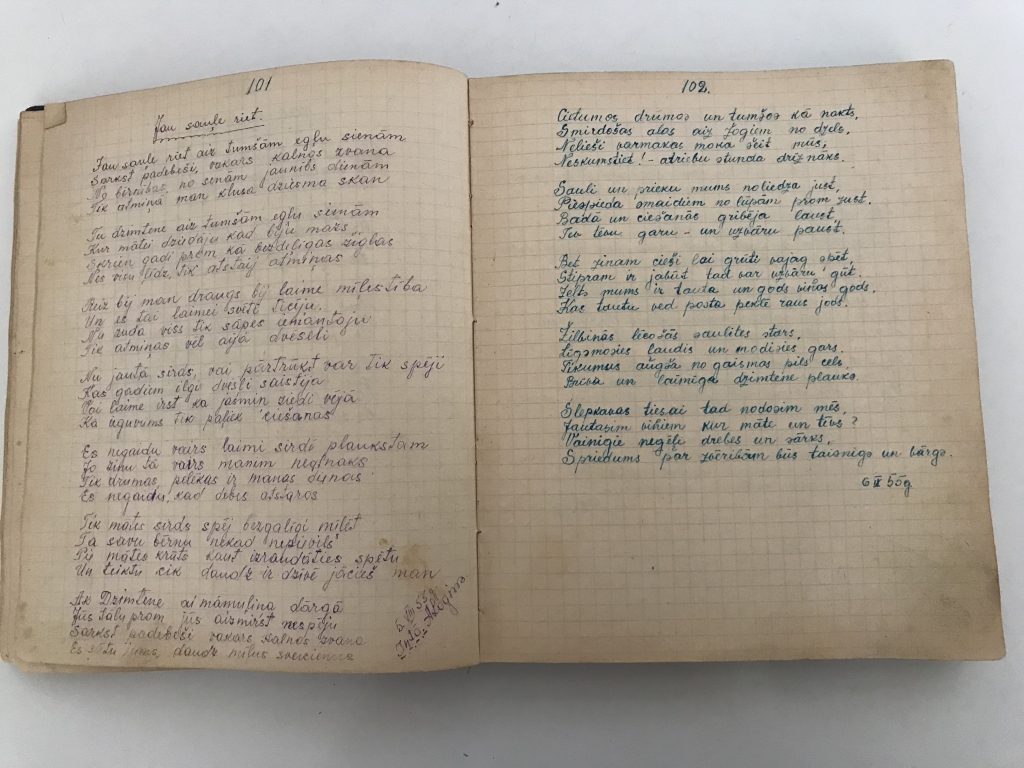 101
Jau saule riet.
Jau saule riet aiz tumšām egļu sienām
Sārkst padebeši, vakars kalnos zvana
No bērnības, no senām jaunības dienām
Tik atmiņā man klusa dziesma skan
Tu dzimtene aiz tumšām egļu sienām
Kur mātei dziedāju kad biju mazs
Skrien gadi prom kā bezdelīgas žiglas
Nes visu līdz, tik atstāj atmiņas
Reiz bij man draugs bij laime mīlestība
Un es tai laimei svēti ticēju.
Nu zuda viss tik sāpes
Tik atmiņas vēl aijā dvēselī
Nu jautā sirds, vai pārtrūkst var tik spēji
Kas gadiem ilgi saistīja
Vai laime irst kā jasmīn ziedi vējā
Kā uguvums tik paliek
Es negaidu vairs laimi sirdī plaukstam
Jo zinu tā vairs manim neatnāks
Tik drūmas, pelēkas ir manas dienas
Es negaidu, kad debis atstaros
Tik mātes sirds spēj bezgalīgi mīlēt
Tā savu bērnu nekad nepievils
Pij mātes krūts kaut izraudāties spētu
Un teiktu cik daudz ir dzīvē jācieš man
Ak Dzimtene ai māmuliņa dārgā
Jūs tālu prom jūs aizmirst nespēju
Sārkst padebeši vakars kalnos zvana
Es jums, daudz mīļus sveicienus
102.
Cietumos drūmos un tumšos kā nakts,
Smirdošās alās aiz žogiem no dzels,
Nelieši varmākas moka šeit mūs,
Neskumstiet! - atriebu stunda drīz nāks.
Sauli un prieku mums noliedza just,
Piespieda smaidiem no lūpām prom zust.
Badā un ciešanās gribēja laust,
Tev tēvu garu - un uzvaru paust.
Bet zinam cieši lai grūti vajag spēt,
Stipram ir jabūt tad var uzvaru gūt.
Zelts mums ir tauta un gods viņas gods.
Kas tautu ved postā peklē raus jods.
Žilbinās liesošs saulītes stars,
Līgsmosies laudis un modīsies gars.
Tikumus augšā no gaismas pils cels,
Brīva un laimīga dzimtene plauks.
Slepkavas tiesai tad nodosim mēs,
Jautāsim viņiem kur māte un tēvs?
Vainīgie negēļi drebēs un sārks,
Spriedums par zvērībām būs taisnīgs un bārgs.